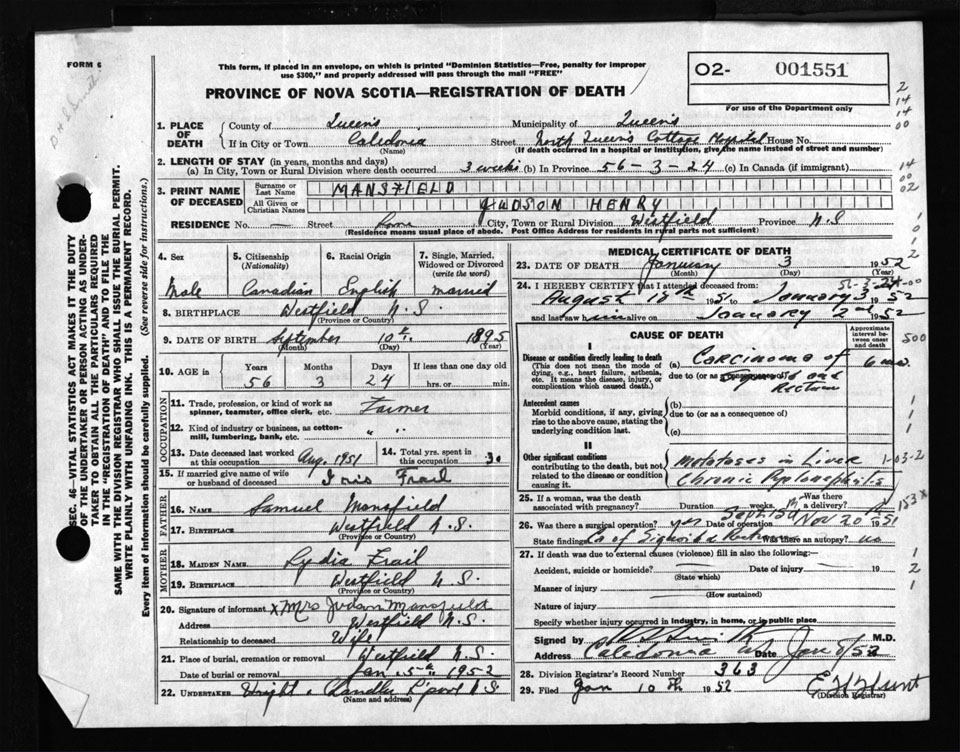 FORM 6
This form, if placed in an envelope, on which is printed "Dominion Statistics—Free, penalty for improper
use $300," and properly addressed will pass through the mail "FREE"
PROVINCE OF NOVA SCOTIA—REGISTRATION OF DEATH
O2- 001551
For use of the Department only
SEC. 46—VITAL STATISTICS ACT MAKES IT THE DUTY
OF THE UNDERTAKER OR PERSON ACTING AS UNDER-
TAKER TO OBTAIN ALL THE PARTICULARS REQUIRED
IN THE "REGISTRATION OF DEATH" AND TO FILE THE
SAME WITH THE DIVISION REGISTRAR WHO SHALL ISSUE THE BURIAL PERMIT.
WRITE PLAINLY WITH UNFADING INK. THIS IS A PERMANENT RECORD.
Every item of information should be carefully supplied. (See reverse side for instructions.)
1. PLACE OF DEATH
County of Queens Municipality of Queens
If in City or Town Caledonia Street North Queens Cottage Hospital House No.
(Name) (If death occurred in a hospital or institution, give the name instead of street and number)
2. LENGTH OF STAY (in years, months and days)
(a) In City, Town or Rural Division where death occurred 3 weeks (b) In Province 56-3-24 (c) In Canada (if immigrant)
3. PRINT NAME OF DECEASED
Surname or Last Name MANSFIELD
All Given or Christian Names JUDSON HENRY
RESIDENCE No. — Street City, Town or Rural Division Westfield Province N.S
(Residence means usual place of abode. Post Office Address for residents in rural parts not sufficient)
4. Sex Male
5. Citizenship (Nationality) Canadian
6. Racial Origin English
7. Single, Married, Widowed or Divorced (write the word) married
8. BIRTHPLACE Westfield N.S.
(Province or Country)
9. DATE OF BIRTH September 10th 1895
(Month) (Day) (Year)
10. AGE in Years Months Days If less than one day old
56 3 24 hrs. or min.
OCCUPATION
11. Trade, profession, or kind of work as spinner, teamster, office clerk, etc. Farmer
12. Kind of industry or business, as cotton-mill, lumbering, bank, etc. " "
13. Date deceased last worked at this occupation Aug. 1951
14. Total yrs. spent in this occupation 30
15. If married give name of wife or husband of deceased Iris Frail
FATHER
16. Name Samuel Mansfield
17. Birthplace Westfield N.S.
(Province or Country)
MOTHER
18. Maiden Name Lydia Frail
19. Birthplace Westfield N.S.
(Province or Country)
20. Signature of informant x Mrs Judson Mansfield
Address Westfield N.S.
Relationship to deceased Wife
21. Place of burial, cremation or removal Westfield N.S.
Date of burial or removal Jan. 5th 1952
22. Undertaker Wright & Chandler L'pool N.S.
(Name and address)
MEDICAL CERTIFICATE OF DEATH
23. DATE OF DEATH January 3 1952
(Month) (Day) (Year)
56-3-24-00
24. I HEREBY CERTIFY that I attended deceased from:
August 19 51 to January 3 19 52
and last saw him alive on January 2nd 19 52
CAUSE OF DEATH
Approximate interval between onset and death
I
Disease or condition directly leading to death
(This does not mean the mode of dying, e.g., heart failure, asthenia, etc. It means the disease, injury, or complication which caused death.)
(a) Carcinoma of 6 mo.
due to (or as a consequence of) Sigmoid and
Rectum
Antecedent causes
Morbid conditions, if any, giving rise to the above cause, stating the underlying condition last.
(b)
due to (or as a consequence of)
(c)
II
Other significant conditions
contributing to the death, but not related to the disease or condition causing it.
Metatases in Liver
Chronic Pyelonephritis
25. If a woman, was the death associated with pregnancy? Duration weeks. Was there a delivery?
26. Was there a surgical operation? yes Date of operation Nov 20 19 51
State findings Ca of Sigmoid & Rectum Was there an autopsy? no
27. If death was due to external causes (violence) fill in also the following:—
Accident, suicide or homicide? Date of injury 19
(State which)
Manner of injury
(How sustained)
Nature of injury
Specify whether injury occurred in industry, in home, or in public place
Signed by M.D.
Address Caledonia Date Jan 52
28. Division Registrar's Record Number 363
29. Filed Jan 10th 19 52
(Division Registrar)